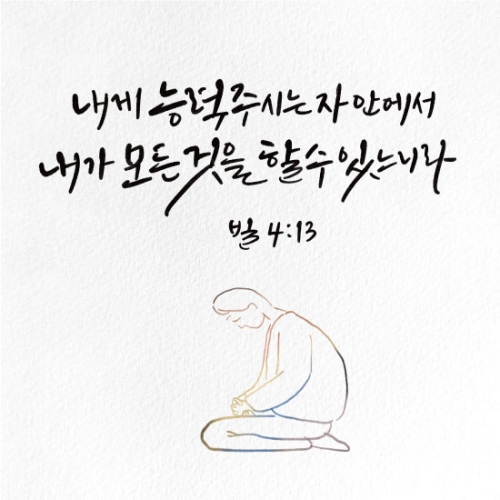 내게 능력주시는 자 안에서
내가 모든 것을 할 수 있느니라
빌 4:13